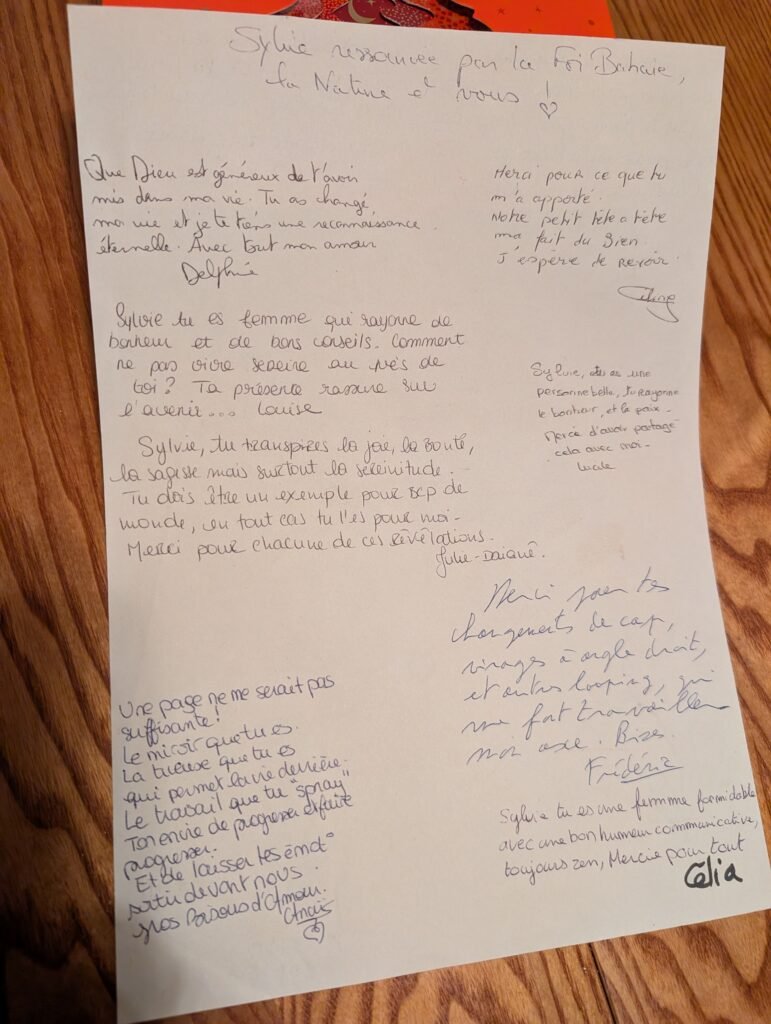 Sylvie ressourcée par la Foi Bahaie,
la Nature et vous !
Que Dieu est généreux de t'avoir
mis dans ma vie. Tu as changé
ma vie et je te tiens une reconnaissance
éternelle. Avec tout mon amour
Delphine
Merci pour ce que tu
m'a apporté.
Notre petit tête a tête
ma fait du Bien.
J'espère te revoir.
Sylvie tu es femme qui rayonne de
bonheur et de bons conseils. Comment
ne pas vivre sereine au près de
toi ? Ta présence rassure sur
l'avenir... Louise
Sylvie, tu es une
personne belle, tu rayonne
le bonheur, et la paix.
Mercie d'avoir partagé
cela avec moi -
Lucile
Sylvie, tu transpires la joie, la bonté,
la sagesse mais surtout la sérénitude.
Tu dois être un exemple pour bcp de
monde, en tout cas tu l'es pour moi -
Merci pour chacune de ces Révélations.
Julie-
Merci pour tes
changements de cap,
virages à angle droit,
et autres looping, qui
me font travailler
mon axe. Bises.
Frédéric
Une page ne me serait pas
suffisante !
Le miroir que tu es.
La tueuse que tu es
qui permet la vie derrière.
Le travail que tu "spray"
Ton envie de progresser et faire
progresser.
Et de laisser tes émot°
sortir devant nous.
Gros Bisous d'Amour.
Anaïs
Sylvie tu es une femme formidable
avec une bon humeur communicative,
toujours zen, Mercie pour tout
Célia